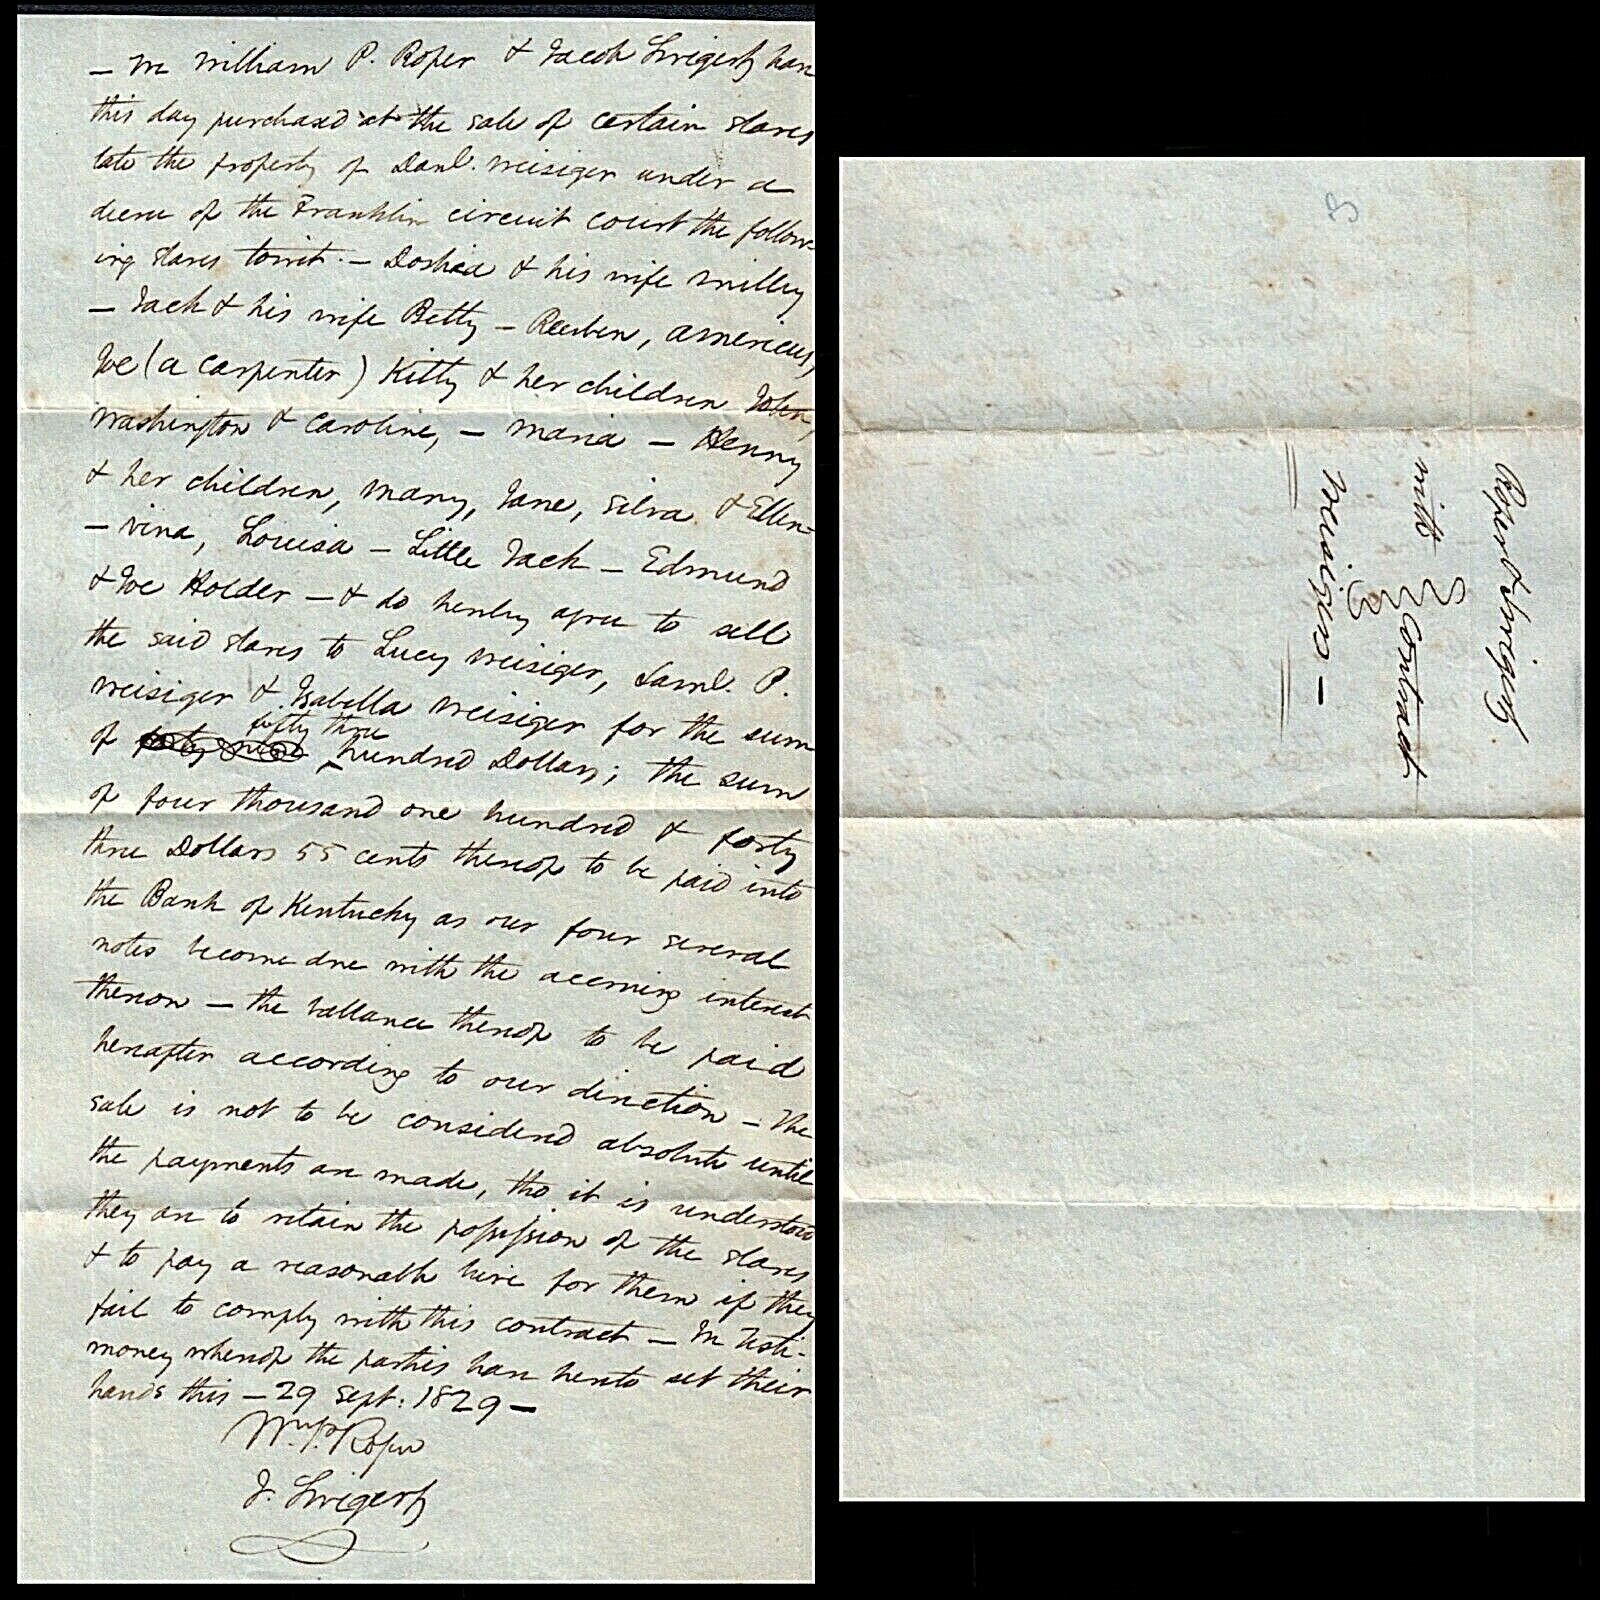 — We William P. Roper & Jacob Swigert have
this day purchased at the sale of certain slaves
late the property of Danl. Weisiger under a
decree of the Franklin circuit court the follow-
ing slaves towit: — Doshia & his wife Milley
— Jack & his wife Betty — Reuben, Americus,
Joe (a carpenter) Kitty & her children John,
Washington & Caroline, — Maria — Henny
& her children, Mary, Jane, Silva & Ellen-
— vina, Louisa — Little Jack — Edmund
& Joe Holder — & do hereby agree to sell
the said slaves to Lucy Weisiger, Saml. P.
Weisiger & Isabella Weisiger for the sum
fifty three
of hundred Dollars; the sum
of four thousand one hundred & forty
three Dollars 55 cents thereof to be paid into
the Bank of Kentucky as our four several
notes become due with the accruing interest
thereon — the ballance thereof to be paid
hereafter according to our direction — The
sale is not to be considered absolute until
the payments are made, tho it is understood
they are to retain the possession of the slaves
& to pay a reasonable hire for them if they
fail to comply with this contract — In Testi-
mony whereof the parties have hereto set their
hands this — 29 Sept: 1829 —
Wm. P. Roper
J. Swigert
Roper & Swigert
with } Contract
Weisigers —